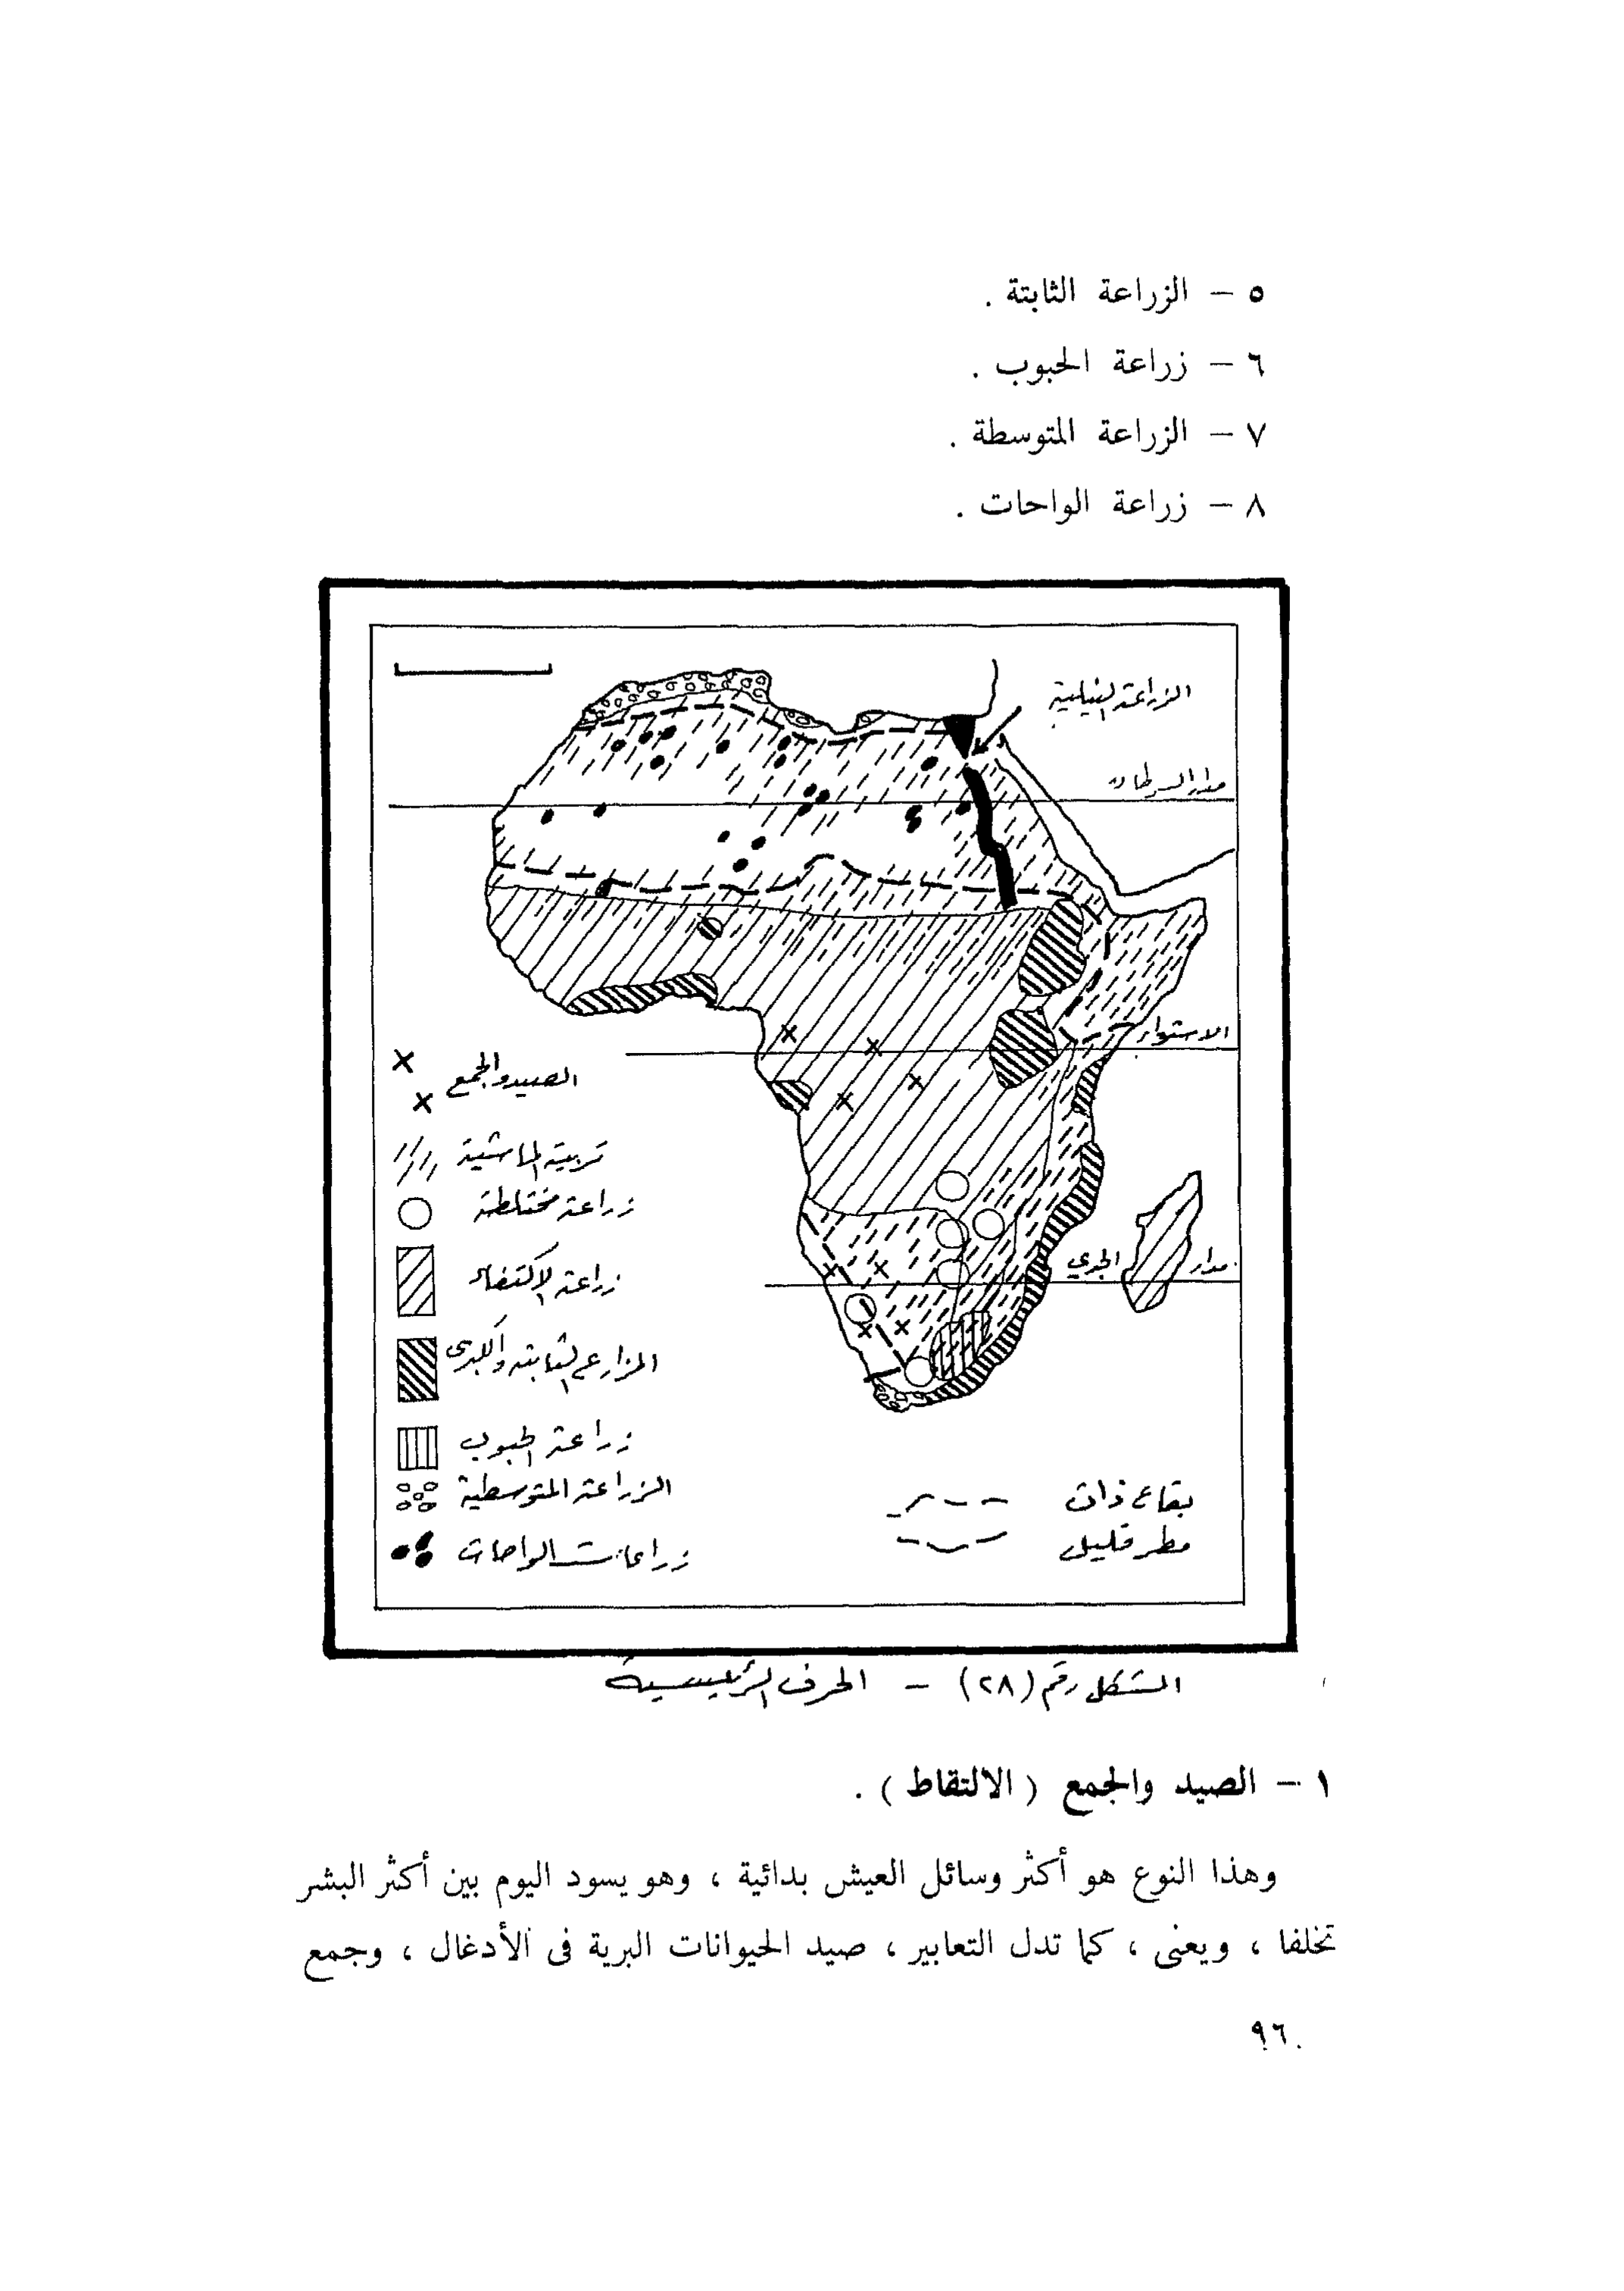 ٥ – الزراعة الثابتة .
٦ – زراعة الحبوب .
٧ – الزراعة المتوسطة .
٨ – زراعة الواحات .
الزراعة النيلية
مدار السرطان
الاستواء
مدار الجدي
الصيد والجمع
تربية الماشية
زراعة مختلطة
زراعة الاكتفاء
المزارع الثابتة والكبرى
زراعة الحبوب
الزراعة المتوسطية
زراعات الواحات
بقاع ذات
مطر قليل
الشكل رقم (٢٨) – الحرف الرئيسية
١ – الصيد والجمع ( الالتقاط ) .
وهذا النوع هو أكثر وسائل العيش بدائية ، وهو يسود اليوم بين أكثر البشر
تخلفا ، ويعنى ، كما تدل التعابير ، صيد الحيوانات البرية فى الأدغال ، وجمع
٩٦